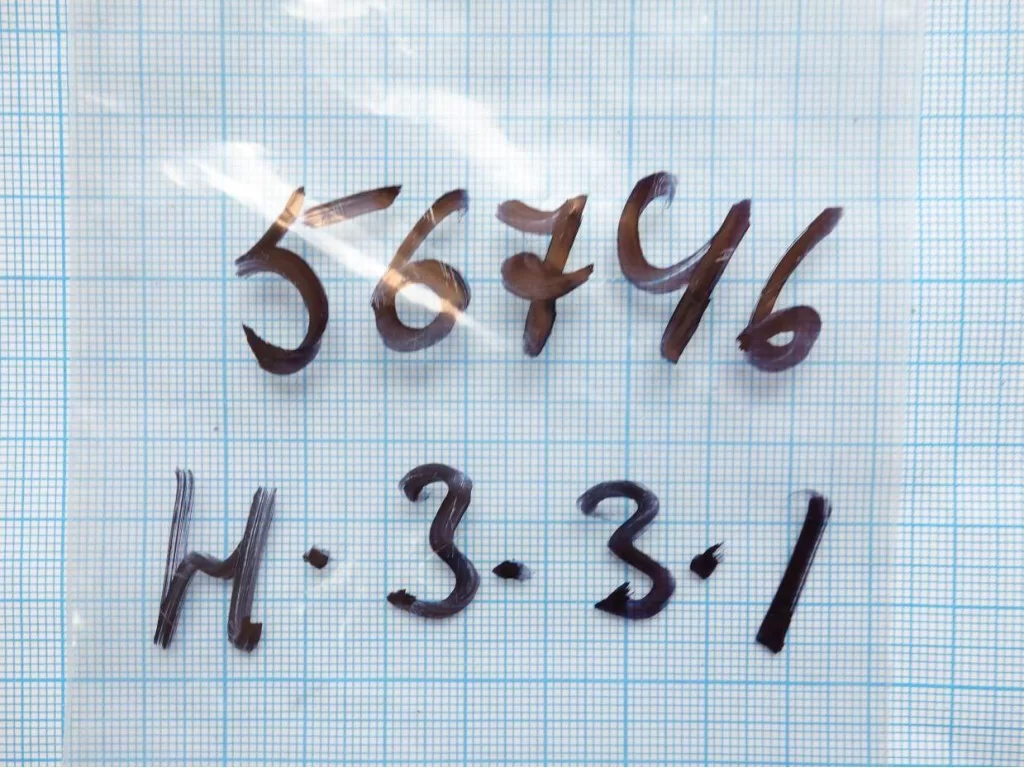 56746
H.3.3.1